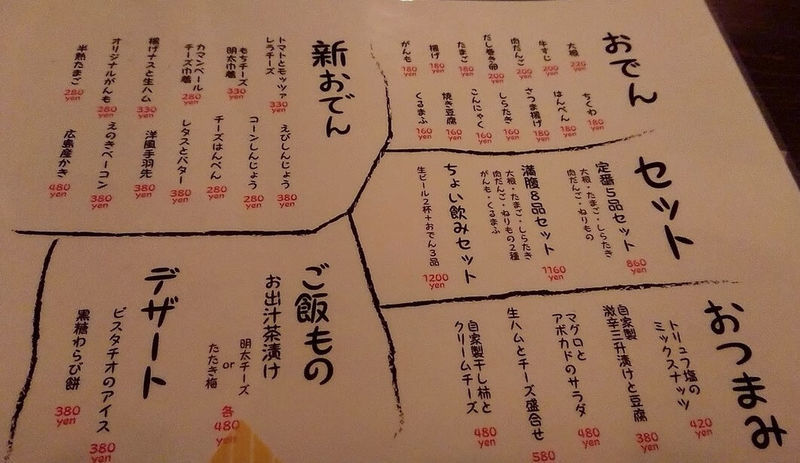 おでん
大根
220 yen
牛すじ
200 yen
肉だんご
200 yen
だし巻き卵
200 yen
たまご
180 yen
揚げ
180 yen
がんも
180 yen
ちくわ
180 yen
はんぺん
180 yen
さつま揚げ
180 yen
しらたき
160 yen
こんにゃく
160 yen
焼き豆腐
160 yen
くるまふ
160 yen
新おでん
トマトとモッツァ
レラチーズ
330 yen
もちチーズ
明太巾着
330 yen
カマンベール
チーズ巾着
280 yen
揚げナスと生ハム
330 yen
オリジナルがんも
280 yen
半熟たまご
280 yen
えびしんじょう
380 yen
コーンしんじょう
280 yen
チーズはんぺん
280 yen
レタスとバター
380 yen
洋風手羽先
380 yen
えのきベーコン
380 yen
広島産かき
480 yen
セット
定番5品セット
大根・たまご・しらたき
肉だんご・ねりもの
860 yen
満腹8品セット
大根・たまご・しらたき
肉だんご・ねりもの2種
がんも・くるまふ
1160 yen
ちょい飲みセット
生ビール2杯+おでん3品
1200 yen
おつまみ
トリュフ塩の
ミックスナッツ
420 yen
自家製
激辛三升漬けと豆腐
380 yen
マグロと
アボカドのサラダ
480 yen
生ハムとチーズ盛合せ
580
自家製干し柿と
クリームチーズ
480 yen
ご飯もの
お出汁茶漬け
明太チーズ
or
たたき梅
各
480 yen
デザート
ピスタチオのアイス
380 yen
黒糖わらび餅
380 yen